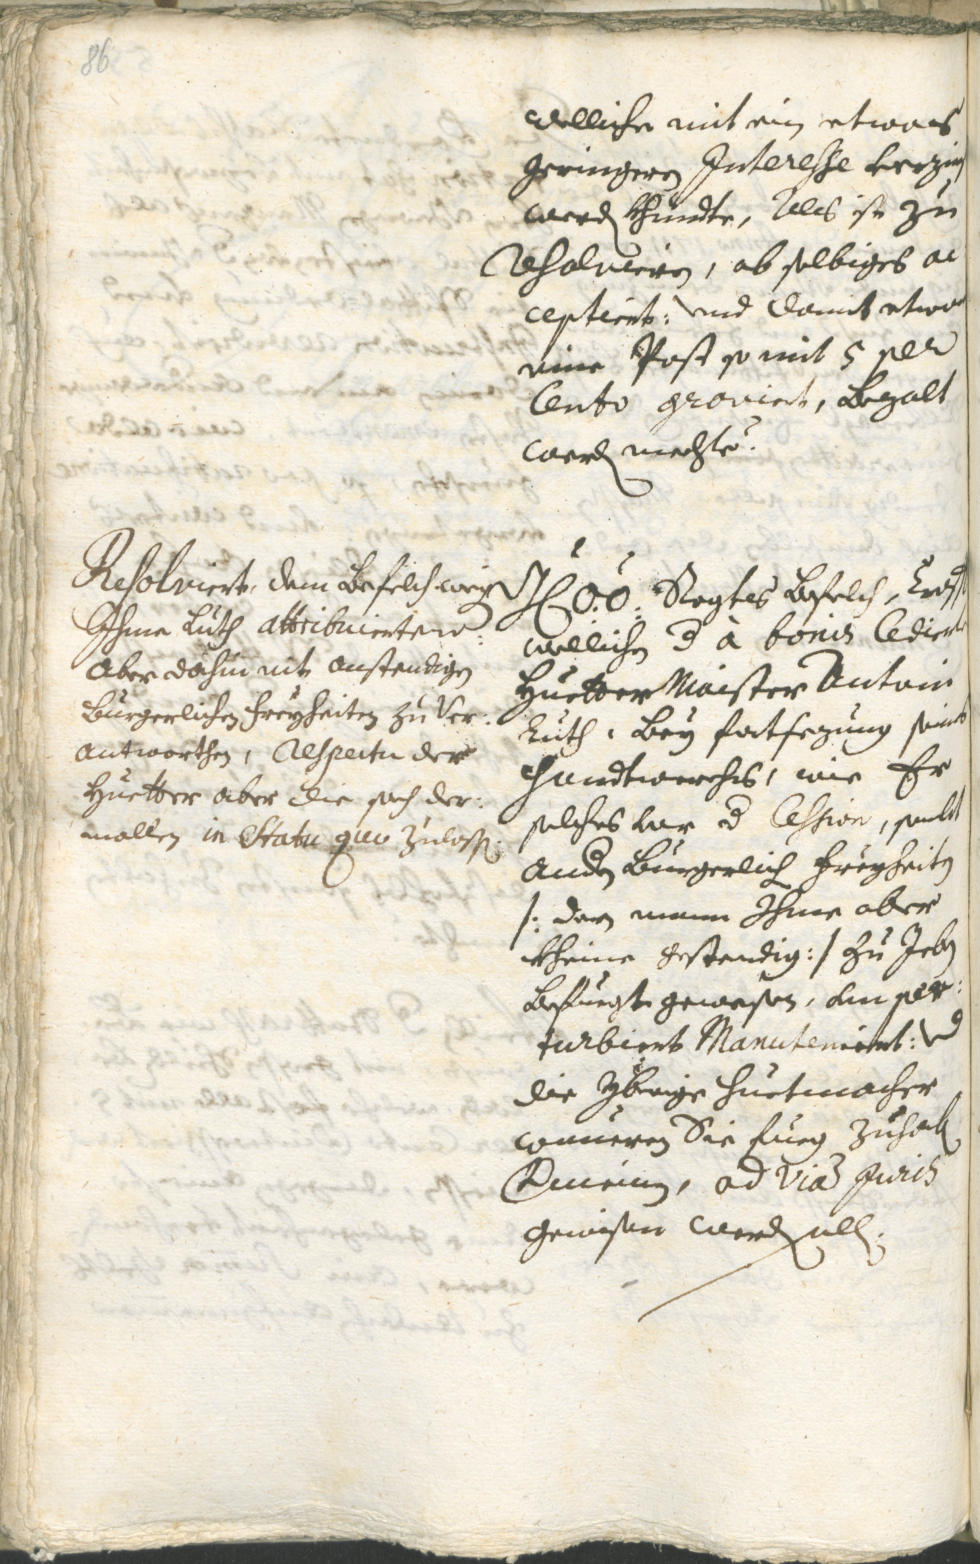 86
welliche mit ein etwas
geringern Interesse verzinst
werd khundte, Als ist zu
Resolvieren, ob selbiges ac
ceptiert: und damit etwan
eine Post so mit 5 per
Cento graviert, bezalt
werd mechte.
Resolviert. dem Befelch weg
Ihme Luth attribuierten:
aber dahin nit anstendigen
Burgerlichen Freyheiten zu Ver:
antworthen, Respectu der
Huetter aber die sach der:
mallen in Statu quo zulass.
O:Ö: Regts Befelch,
wellichen d à bonis Cedierte
Huetter Maister Antoni
Luth, bey fortsezung seines
Handtwerchs, wie Er
solches vor d Cession, sambt
andn Burgerlich Freyheitn
/: dern mann Ihme aber
kheine gestendig :/ zu Iebn
befuegt gewesen, den per:
turbiert Manuteniert: und
die Ybrige Huetmacher
wauern Sie fueg zuhab
vermeinen, ad viam Juris
gewisen werd soll.